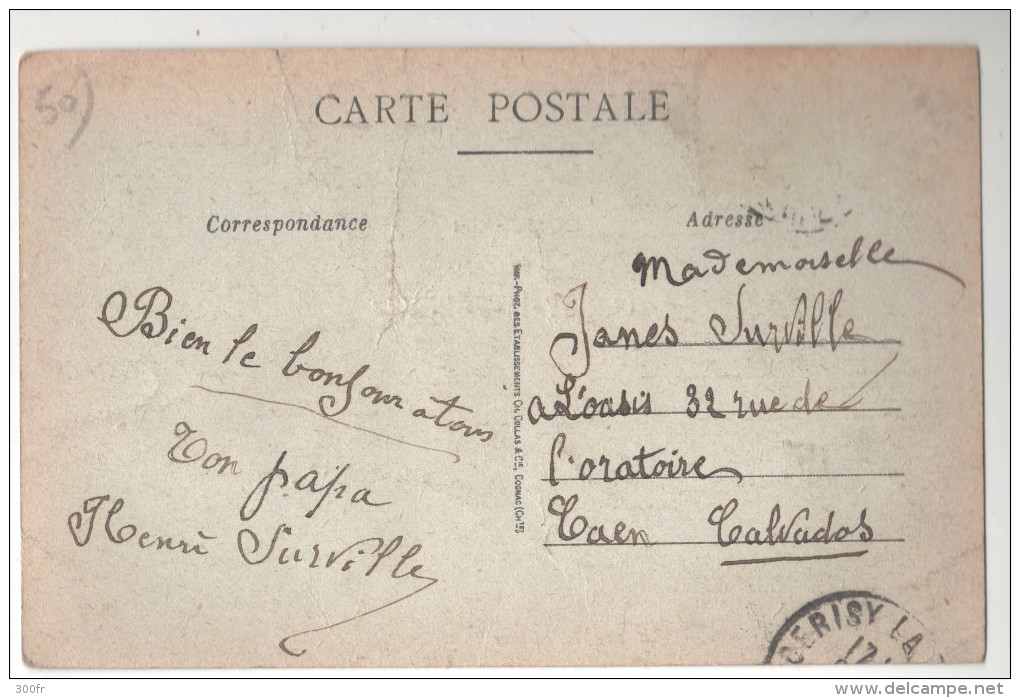 50)
CARTE POSTALE
Correspondance
Adresse
Bien le bonjour a tous
Ton papa
Henri Surville
IMP.-PHOT. DES ETABLISSEMENTS CH. COLLAS & Cie, COGNAC (CHte)
Mademoiselle
Janes Surville
a L'oasis 32 rue de
l'oratoire
Caen Calvados
CERISY LA
17
300fr
delcampe.net